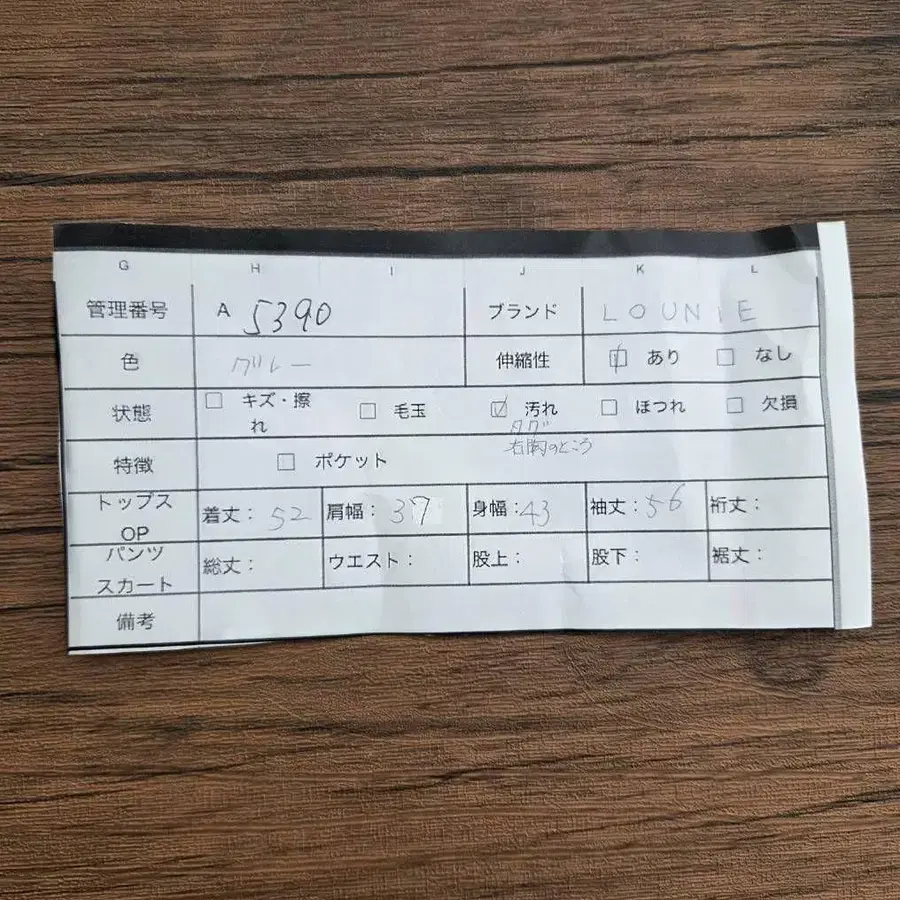 G H I J K L
管理番号 A 5390 ブランド LOUNIE
色 グレー 伸縮性 ☑ あり ☐ なし
状態 ☐ キズ・擦れ ☐ 毛玉 ☑ 汚れ ☐ ほつれ ☐ 欠損
タグ
右胸のところ
特徴 ☐ ポケット
トップス
OP
着丈：52 肩幅：37 身幅：43 袖丈：56 裄丈：
パンツ
スカート
総丈： ウエスト： 股上： 股下： 裾丈：
備考